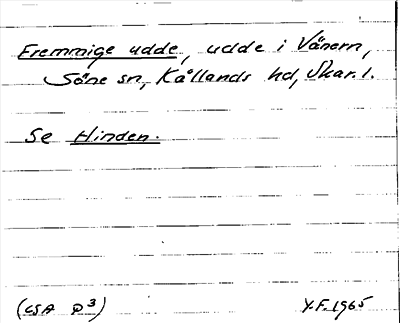 Fremmige udde, udde i Vänern,
Söne sn, Kållands hd, Skar. l.
Se Hinden.
(CSA D³) Y.F. 1965